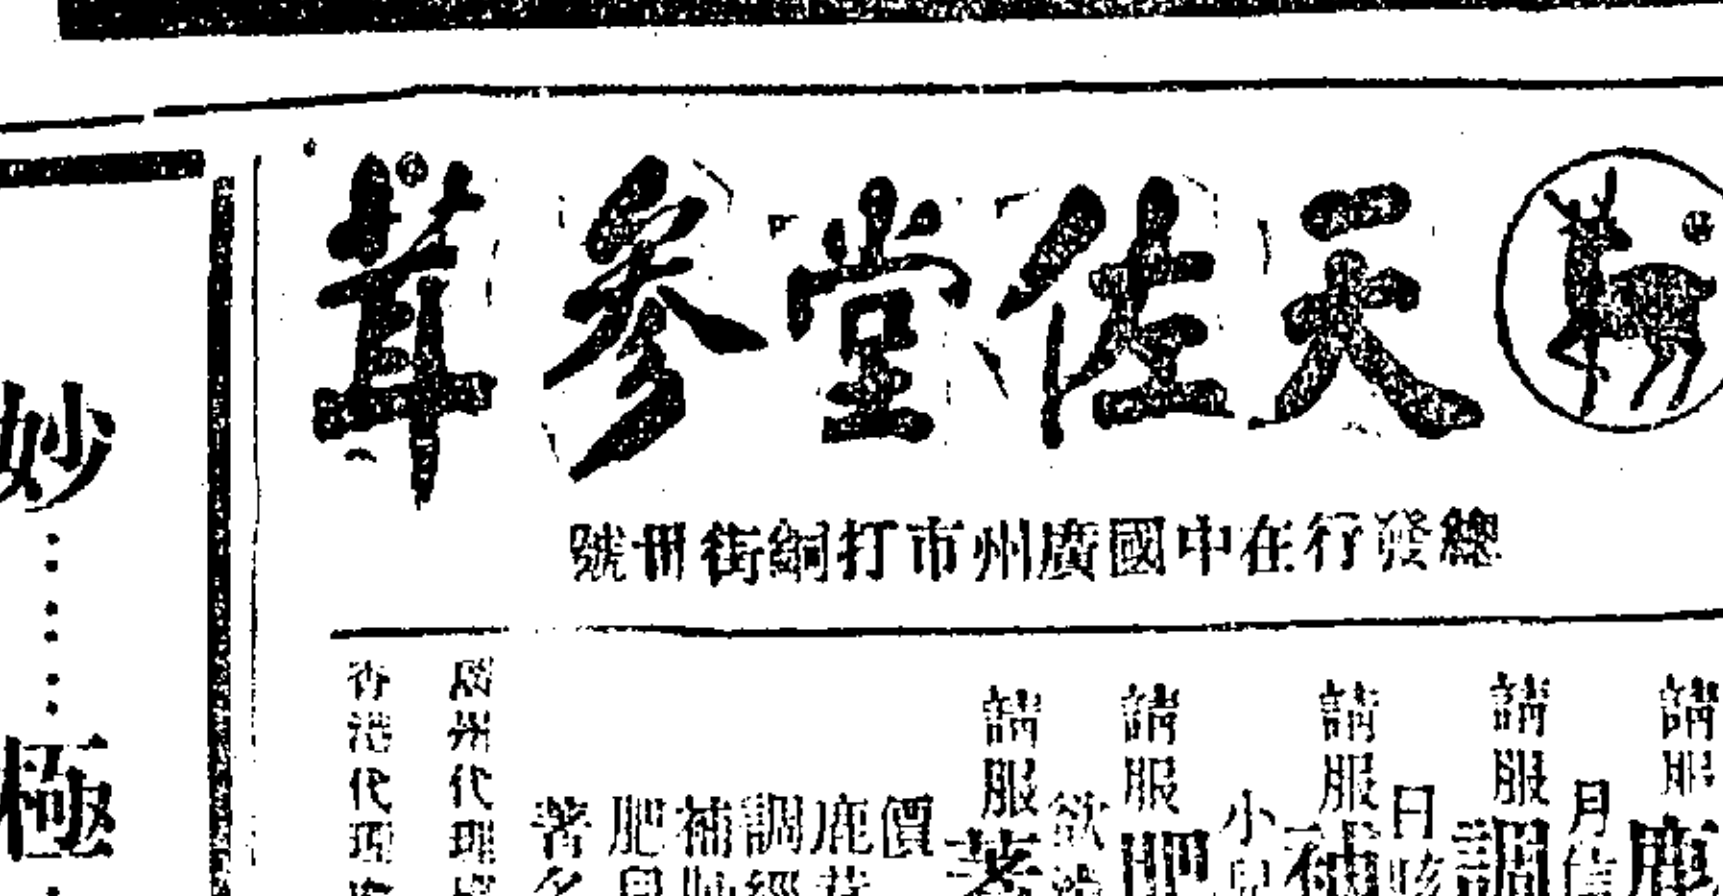 天佐堂參茸
總發行在中國廣州市打銅街卌號
請服鹿
月
請服調
日
請服補
小兒
請服肥
欲
請服著
價
鹿茸
調經
補
肥兒
著名
廣州代理
香港代理
妙……極